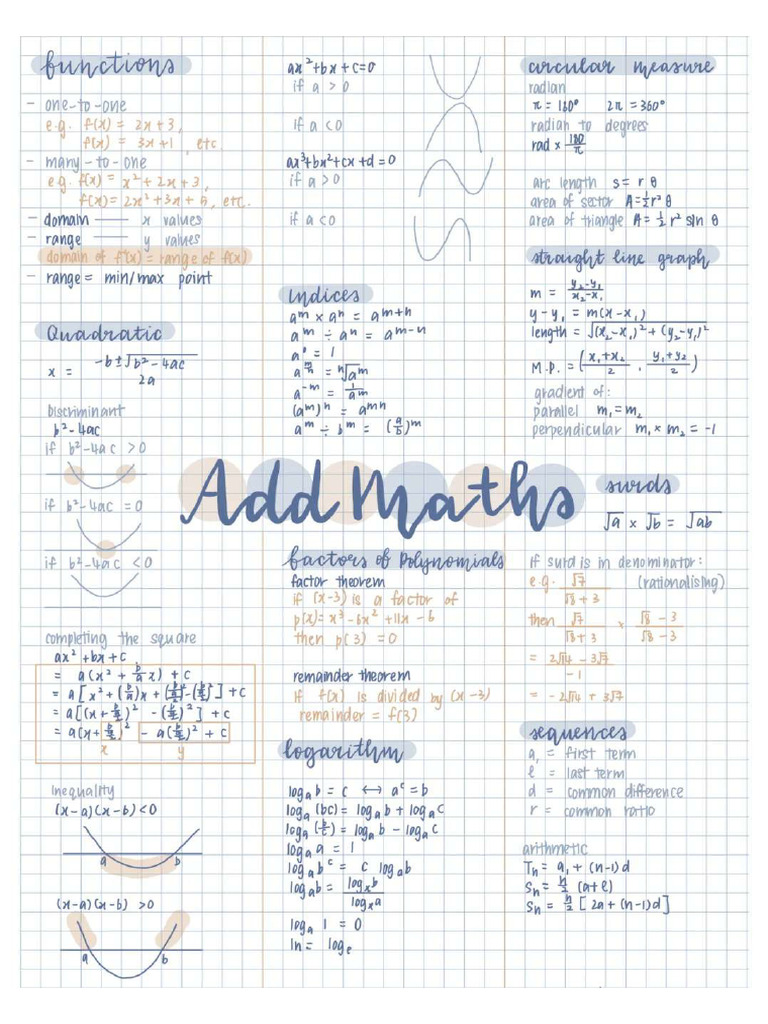 functions
- one-to-one
e.g. f(x) = 2x+3,
f(x) = 3x+1, etc.
- many-to-one
e.g. f(x) = x² + 2x + 3,
f(x) = 2x² + 3x + 5, etc.
- domain — x values
- range — y values
domain of f'(x) = range of f(x)
- range = min/max point
Quadratic
x = -b ± √b² - 4ac / 2a
Discriminant
b² - 4ac
if b² - 4ac > 0
if b² - 4ac = 0
if b² - 4ac < 0
completing the square
ax² + bx + c
= a(x² + b/a x) + c
= a[x² + (b/a)x + (b/2)² - (b/2)²] + c
= a[(x + b/2)² - (b/2)²] + c
= a(x + b/2)² - a(b/2)² + c
x y
Inequality
(x-a)(x-b) < 0
a b
(x-a)(x-b) > 0
a b
ax² + bx + c = 0
if a > 0
if a < 0
ax³ + bx² + cx + d = 0
if a > 0
if a < 0
indices
aᵐ × aⁿ = aᵐ⁺ⁿ
aᵐ ÷ aⁿ = aᵐ⁻ⁿ
a° = 1
a^(m/n) = ⁿ√aᵐ
a⁻ᵐ = 1/aᵐ
(aᵐ)ⁿ = aᵐⁿ
aᵐ ÷ bᵐ = (a/b)ᵐ
Add Maths
factors of Polynomials
factor theorem
if (x-3) is a factor of
p(x) = x³ - 6x² + 11x - 6
then p(3) = 0
remainder theorem
If f(x) is divided by (x-3)
remainder = f(3)
logarithm
logₐ b = c ↔ aᶜ = b
logₐ (bc) = logₐ b + logₐ c
logₐ (b/c) = logₐ b - logₐ c
logₐ a = 1
logₐ bᶜ = c logₐ b
logₐ b = logₓ b / logₓ a
logₐ 1 = 0
ln = logₑ
circular measure
radian
π = 180° 2π = 360°
radian to degrees
rad × 180/π
arc length s = r θ
area of sector A = ½ r² θ
area of triangle A = ½ r² sin θ
straight line graph
m = y₂-y₁ / x₂-x₁
y - y₁ = m(x - x₁)
length = √(x₂-x₁)² + (y₂-y₁)²
M.P. = (x₁+x₂ / 2 , y₁+y₂ / 2)
gradient of:
parallel m₁ = m₂
perpendicular m₁ × m₂ = -1
surds
√a × √b = √ab
If surd is in denominator:
e.g. √7 / √8 + 3 (rationalising)
then √7 / √8 + 3 × √8 - 3 / √8 - 3
= 2√14 - 3√7 / -1
= -2√14 + 3√7
sequences
a₁ = first term
ℓ = last term
d = common difference
r = common ratio
arithmetic
Tₙ = a₁ + (n-1)d
Sₙ = n/2 (a+ℓ)
Sₙ = n/2 [2a + (n-1)d]